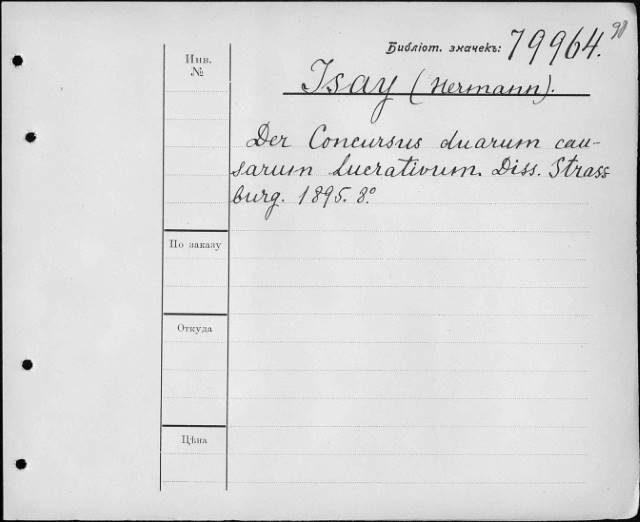 90
Библіот. значекъ: 79964.
Инв.
№
Isay (Hermann).
Der Concursus duarum cau-
sarum lucrativum. Diss. Strass
burg. 1895. 8°.
По заказу
Откуда
Цѣна